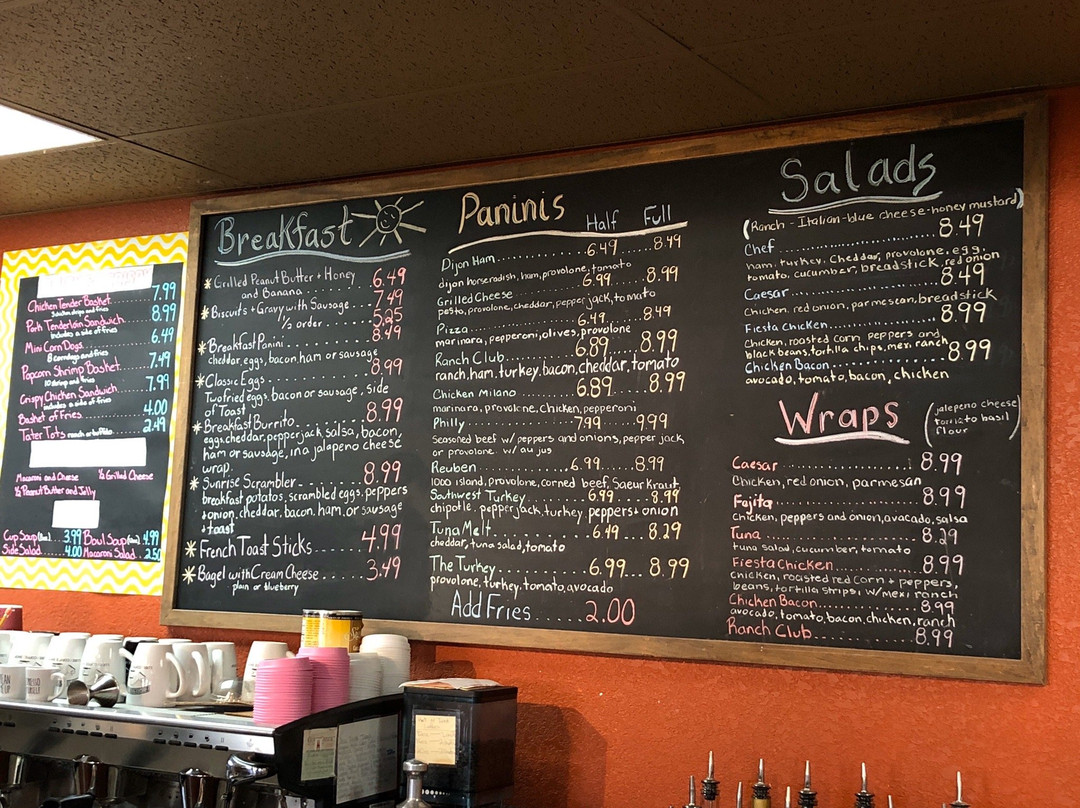 Chicken Tender Basket 7.99
Pork Tenderloin Sandwich 8.99
includes a side of fries
Mini Corn Dogs 6.49
8 corn dogs and fries
Popcorn Shrimp Basket 7.49
10 shrimp and fries
Crispy Chicken Sandwich 7.99
includes a side of fries
Basket of Fries 4.00
Tater Tots 2.49
Macaroni and Cheese ½ Grilled Cheese
½ Peanut Butter and Jelly
Cup Soup 3.99 Bowl Soup 4.99
Side Salad 4.00 Macaroni Salad 2.50
Breakfast
* Grilled Peanut Butter + Honey 6.49
and Banana
* Biscuits + Gravy with Sausage 7.49
½ order 5.25
* Breakfast Panini 8.99
cheddar, eggs, bacon, ham or sausage
* Classic Eggs 8.99
Two fried eggs, bacon or sausage, side
of Toast
* Breakfast Burrito 8.99
eggs, cheddar, pepperjack, salsa, bacon,
ham or sausage, in a jalapeno cheese
wrap.
* Sunrise Scrambler 8.99
breakfast potatos, scrambled eggs, peppers
+ onion, cheddar, bacon, ham, or sausage
+ toast
* French Toast Sticks 4.99
* Bagel with Cream Cheese 3.49
plain or blueberry
Paninis Half Full
Dijon Ham 6.49 8.49
dijon horseradish, ham, provolone, tomato
Grilled Cheese 6.99 8.99
pesto, provolone, cheddar, pepper jack, tomato
Pizza 6.49 8.49
marinara, pepperoni, olives, provolone
Ranch Club 6.89 8.99
ranch, ham, turkey, bacon, cheddar, tomato
Chicken Milano 6.89 8.99
marinara, provolone, chicken, pepperoni
Philly 7.99 9.99
Seasoned beef w/ peppers and onions, pepper jack
or provolone w/ au jus
Reuben 6.99 8.99
1000 island, provolone, corned beef, Saeur Kraut
Southwest Turkey 6.99 8.99
chipotle, pepperjack, turkey, peppers + onion
Tuna Melt 6.49 8.29
cheddar, tuna salad, tomato
The Turkey 6.99 8.99
provolone, turkey, tomato, avocado
Add Fries 2.00
Salads
(Ranch - Italian - blue cheese - honey mustard)
Chef 8.49
ham, turkey, cheddar, provolone, egg,
tomato, cucumber, breadstick, red onion
Caesar 8.49
Chicken, red onion, parmesean, breadstick
Fiesta Chicken 8.99
Chicken, roasted corn, peppers and
black beans, tortilla chips, mexi ranch
Chicken Bacon 8.99
avocado, tomato, bacon, chicken
Wraps
(jalepeno cheese
tomato basil
flour)
Caesar 8.99
Chicken, red onion, parmesan
Fajita 8.99
Chicken, peppers and onion, avacado, salsa
Tuna 8.29
tuna salad, cucumber, tomato
Fiesta Chicken 8.99
chicken, roasted red corn + peppers,
beans, tortilla strips, w/ mexi ranch
Chicken Bacon 8.99
avocado, tomato, bacon, chicken, ranch
Ranch Club 8.99